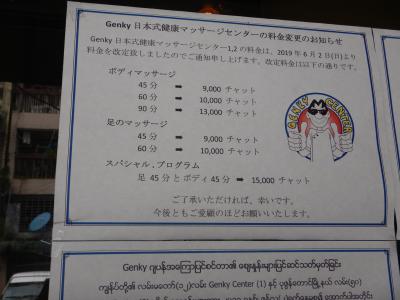 Genky 日本式健康マッサージセンターの料金変更のお知らせ
Genky 日本式健康マッサージセンター1,2 の料金は、2019 年 6 月 2 日(日)より
料金を改定致しましたのでご通知申し上げます。改定料金は以下の通りです。
ボディマッサージ
45 分 ➡ 9,000 チャット
60 分 ➡ 10,000 チャット
90 分 ➡ 13,000 チャット
足のマッサージ
45 分 ➡ 9,000 チャット
60 分 ➡ 10,000 チャット
スパシャル.プログラム
足 45 分とボディ 45 分 ➡ 15,000 チャット
ご了承いただければ、幸いです。
今後ともご愛顧のほどお願いいたします。
GENKY CENTER
Genky ဂျပန်အကြောပြင်စင်တာ၏ ဈေးနှုန်းများပြင်ဆင်သတ်မှတ်ခြင်း
ကျွန်ုပ်တို့၏ လမ်းမတော်(၁၂)လမ်း Genky Center (1) နှင့်